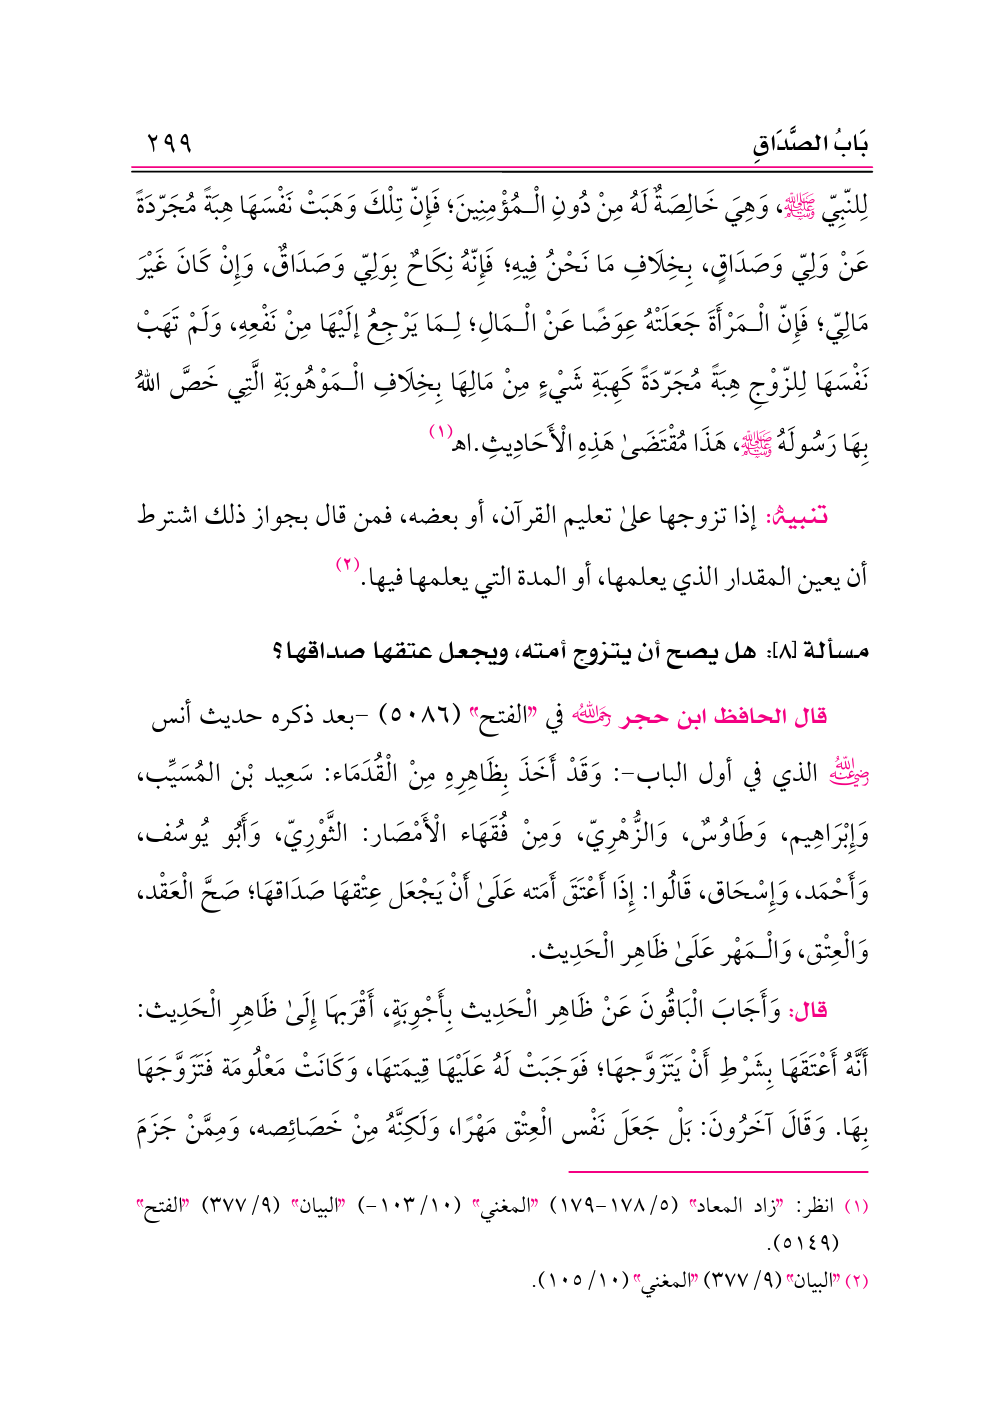 بَابُ الصَّدَاقِ ٢٩٩
لِلنَّبِيِّ ﷺ، وَهِيَ خَالِصَةٌ لَهُ مِنْ دُونِ الْـمُؤْمِنِينَ؛ فَإِنّ تِلْكَ وَهَبَتْ نَفْسَهَا هِبَةً مُجَرّدَةً
عَنْ وَلِيّ وَصَدَاقٍ، بِخِلَافِ مَا نَحْنُ فِيهِ؛ فَإِنّهُ نِكَاحٌ بِوَلِيّ وَصَدَاقٌ، وَإِنْ كَانَ غَيْرَ
مَالِيّ؛ فَإِنّ الْـمَرْأَةَ جَعَلَتْهُ عِوَضًا عَنْ الْـمَالِ؛ لِـمَا يَرْجِعُ إلَيْهَا مِنْ نَفْعِهِ، وَلَمْ تَهَبْ
نَفْسَهَا لِلزّوْجِ هِبَةً مُجَرّدَةً كَهِبَةِ شَيْءٍ مِنْ مَالِهَا بِخِلَافِ الْـمَوْهُوبَةِ الَّتِي خَصَّ اللهُ
بِهَا رَسُولَهُ ﷺ، هَذَا مُقْتَضَىٰ هَذِهِ الْأَحَادِيثِ.اهـ(١)
تنبيهٌ: إذا تزوجها علىٰ تعليم القرآن، أو بعضه، فمن قال بجواز ذلك اشترط
أن يعين المقدار الذي يعلمها، أو المدة التي يعلمها فيها.(٢)
مسألة [٨]: هل يصح أن يتزوج أمته، ويجعل عتقها صداقها؟
قال الحافظ ابن حجر رحمه الله في "الفتح" (٥٠٨٦) -بعد ذكره حديث أنس
رضي الله عنه الذي في أول الباب-: وَقَدْ أَخَذَ بِظَاهِرِهِ مِنْ الْقُدَمَاء: سَعِيد بْن المُسَيِّب،
وَإِبْرَاهِيم، وَطَاوُسٌ، وَالزُّهْرِيّ، وَمِنْ فُقَهَاء الْأَمْصَار: الثَّوْرِيّ، وَأَبُو يُوسُف،
وَأَحْمَد، وَإِسْحَاق، قَالُوا: إِذَا أَعْتَقَ أَمَته عَلَىٰ أَنْ يَجْعَل عِتْقهَا صَدَاقهَا؛ صَحَّ الْعَقْد،
وَالْعِتْق، وَالْـمَهْر عَلَىٰ ظَاهِر الْحَدِيث.
قال: وَأَجَابَ الْبَاقُونَ عَنْ ظَاهِر الْحَدِيث بِأَجْوِبَةٍ، أَقْرَبهَا إِلَىٰ ظَاهِرِ الْحَدِيث:
أَنَّهُ أَعْتَقَهَا بِشَرْطِ أَنْ يَتَزَوَّجهَا؛ فَوَجَبَتْ لَهُ عَلَيْهَا قِيمَتهَا، وَكَانَتْ مَعْلُومَة فَتَزَوَّجَهَا
بِهَا. وَقَالَ آخَرُونَ: بَلْ جَعَلَ نَفْس الْعِتْق مَهْرًا، وَلَكِنَّهُ مِنْ خَصَائِصه، وَمِمَّنْ جَزَمَ
(١) انظر: "زاد المعاد" (٥/ ١٧٨-١٧٩) "المغني" (١٠/ ١٠٣-) "البيان" (٩/ ٣٧٧) "الفتح"
(٥١٤٩).
(٢) "البيان" (٩/ ٣٧٧) "المغني" (١٠/ ١٠٥).